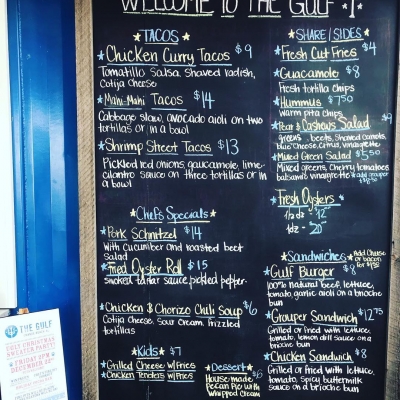 WELCOME TO THE GULF
TACOS
Chicken Curry Tacos $9
Tomatillo Salsa, Shaved radish,
Cotija cheese
Mahi-Mahi Tacos $14
Cabbage slaw, avocado aioli on two
tortillas or in a bowl
Shrimp Street Tacos $13
Pickled red onions, guacamole, lime-
cilantro sauce on three tortillas or in
a bowl
Chefs Specials
Pork Schnitzel $14
With cucumber and roasted beet
salad
Fried Oyster Roll $15
smoked tartar sauce, pickled pepper
Chicken & Chorizo Chili Soup $6
Cotija Cheese, Sour Cream, frizzled
tortillas
Kids $7
Grilled Cheese w/ Fries
Chicken Tenders w/ Fries
Dessert
House made $6
Pecan Pie with
Whipped Cream
SHARE/SIDES
Fresh Cut Fries $4
Guacamole $8
Fresh tortilla chips
Hummus $7.50
warm pita chips
Pear & Cashews Salad $9
greens, beets, Shaved Carrots,
blue Cheese, Citrus, vinaigrette
Mixed Green Salad $5.50
Mixed greens, Cherry tomatoes
balsamic vinaigrette
Fresh Oysters
1/2 dz - $12
1dz - $20
Sandwiches
Add Cheese
or bacon
for $1.50
Gulf Burger $8
100% natural beef, lettuce,
tomato, garlic aioli on a brioche
bun
Grouper Sandwich $12.75
Grilled or fried with lettuce,
tomato, lemon dill sauce on a
brioche bun
Chicken Sandwich $8
Grilled or fried with lettuce,
tomato, Spicy buttermilk
sauce on a brioche bun
THE GULF
UGLY CHRISTMAS
SWEATER PARTY
FRIDAY
DECEMBER